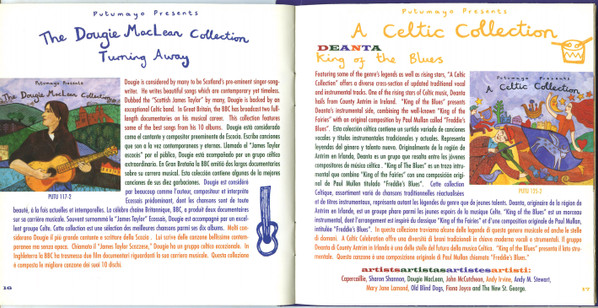 Putumayo Presents
The Dougie MacLean Collection
Turning Away
Putumayo Presents
The Dougie MacLean Collection
PUTU 117-2
Dougie is considered by many to be Scotland's pre-eminent singer-song-
writer. He writes beautiful songs which are contemporary yet timeless.
Dubbed the "Scottish James Taylor" by many, Dougie is backed by an
exceptional Celtic band. In Great Britain, the BBC has broadcast two full-
length documentaries on his musical career. This collection features
some of the best songs from his 10 albums. Dougie está considerado
como el cantante y compositor preeminente de Escocia. Escribe canciones
que son a la vez contemporaneas y eternas. Llamado el "James Taylor
escocés" por el público, Dougie está acompañado por un grupo celtico
extraordinario. En Gran Bretaña la BBC emitió dos largos documentarios
sobre su carrera musical. Esta colección contiene algunas de la mejores
canciones de sus diez garbaciones. Dougie est considéré
par beaucoup comme l'auteur, compositeur et interprète
Ecossais prédominant, dont les chansons sont de toute
beauté, à la fois actuelles et intemporelles. La célèbre chaîne Britannique, BBC, a produit deux documentaires
sur sa carrière musicale. Souvent surnommé le "James Taylor" Ecossais, Dougie est accompagné par un excel-
lent groupe Celte. Cette collection est une sélection des meilleures chansons parmi ses dix albums. Molti con-
siderano Dougie il più grande cantante e scrittore della Scozia . Lui scrive delle canzone bellissime contem-
poranee ma senza epoca. Chiamato il "James Taylor Scozzese," Dougie ha un gruppo celtico eccezionale. In
Inghilterra la BBC ha trasmesso due film documentari riguardanti la sua carriera musicale. Questa collezione
è composta le migliore canzone dei suoi 10 dischi.
16
Putumayo Presents
A Celtic Collection
DEANTA
King of the Blues
Featuring some of the genre's legends as well as rising stars, "A Celtic
Collection" offers a diverse cross-section of updated traditional vocal
and instrumental tracks. One of the rising stars of Celtic music, Deanta
hails from County Antrim in Ireland. "King of the Blues" presents
Deanta's instrumental side, combining the well-known "King of the
Fairies" with an original composition by Paul Mullan called "Freddie's
Blues". Esta colección céltica contiene un surtido variado de canciones
vocales y títulos instrumentales tradicionales y actuales. Representa
leyendas del género y talento nuevo. Originalmente de la región de
Antrim en Irlanda, Deanta es un grupo que resulta entre los jóvenes
compositores de música céltica . "King of the Blues" es un trozo intru-
mental que combina "King of the Fairies" con una composición origi-
nal de Paul Mullan titulada "Freddie's Blues". Cette collection
Celtique, assortiment varié de chansons traditionnelles réactualisées
et de titres instrumentaux, représente autant les légendes du genre que de jeunes talents. Deanta, originaire de la région de
Antrim en Irlande, est un groupe phare parmi les jeunes espoirs de la musique Celte. "King of the Blues" est un morceau
instrumental, dont l'arrangement est inspiré du classique "King of the Fairies" et d'une composition originale de Paul Mullan,
intitulée "Freddie's Blues". In questa collezione troviamo alcune delle legende di questo genere musicale ed anche le stelle
di domani. A Celtic Celebration offre una diversità di brani tradizionali in chiave moderna vocali e strumentali. Il gruppo
Deanta di County Antrim in Irlanda è una delle stelle del futuro della musica Celtica. "King of the Blues" presenta il lato stru-
mentale. Questa canzone è una composizione originale di Paul Mullan chiamata "Freddie's Blues."
Putumayo Presents
A Celtic Collection
PUTU 125-2
artistsartistasartistesartisti:
Capercaillie, Sharon Shannon, Dougie MacLean, John McCutcheon, Andy Irvine, Andy M. Stewart,
Mary Jane Lamond, Old Blind Dogs, Fiona Joyce and The New St. George.
17